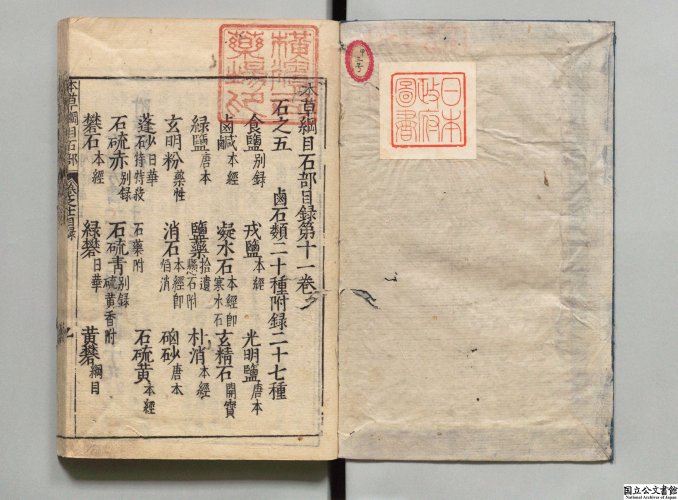 日本政府圖書
本草綱目石部目録第十一卷
石之五 鹵石類二十種附録二十七種
食鹽別録 戎鹽本經 光明鹽唐本
鹵鹹本經 凝水石本經即寒水石 玄精石開寶
緑鹽唐本 鹽藥拾遺 石附 朴消本經
玄明粉藥性 消石本經即 硇砂唐本
蓬砂日華 石藥附 石硫黄本經
石硫赤別録 石硫青別録 硫黄香附
礬石本經 緑礬日華 黄礬綱目
本草綱目石部 目録
国立公文書館
National Archives of Japan